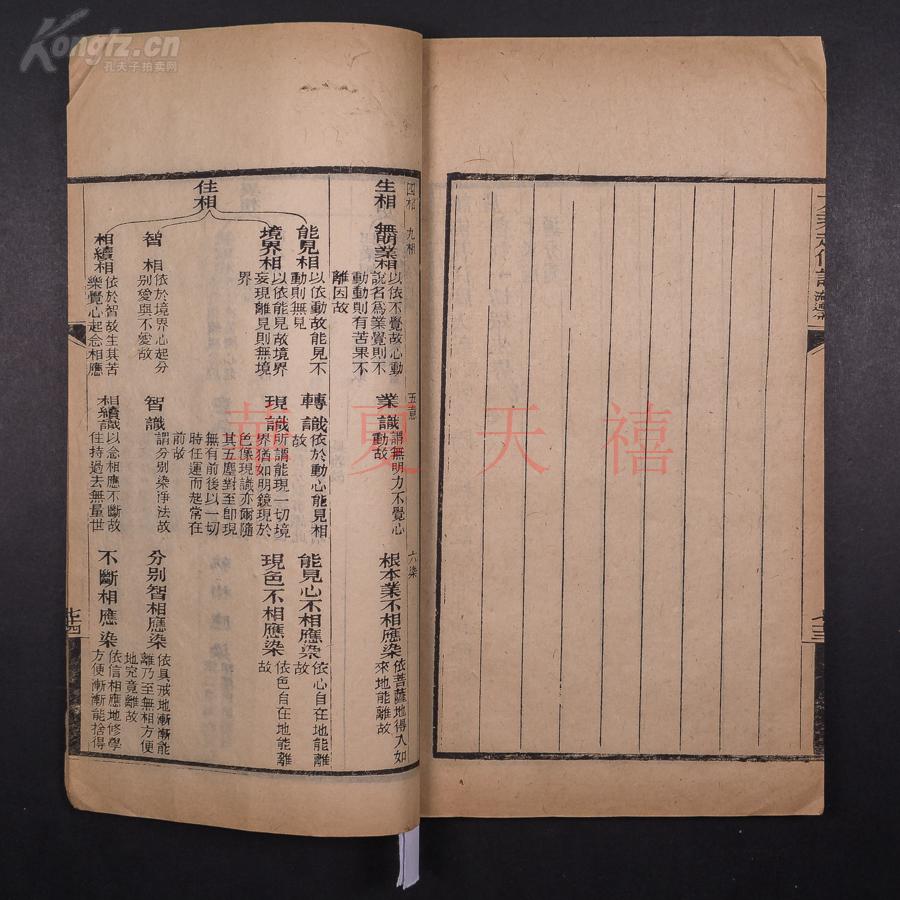 Kongfz.cn
孔夫子拍卖网
華夏天禧
七十三
四相
九相
五意
六染
生相
無明業相
以依不覺故心動
說名為業覺則不
動動則有苦果不
離因故
業識
謂無明力不覺心
動故
根本業不相應染
依菩薩地得入如
來地能離故
住相
能見相
以依動故能見不
動則無見
轉識
依於動心能見相
故
能見心不相應染
依心自在地能離
故
境界相
以依能見故境界
妄現離見則無境
界
現識
所謂能現一切境
界猶如明鏡現於
色像現識亦爾隨
其五塵對至即現
無有前後以一切
時任運而起常在
前故
現色不相應染
依色自在地能離
故
智相
依於境界心起分
別愛與不愛故
智識
謂分別染淨法故
分別智相應染
依具戒地漸漸能
離乃至無相方便
地究竟離故
相續相
依於智故生其苦
樂覺心起念相應
相續識
以念相應不斷故
住持過去無量世
不斷相應染
依信相應地修學
方便漸漸能捨得
七十四